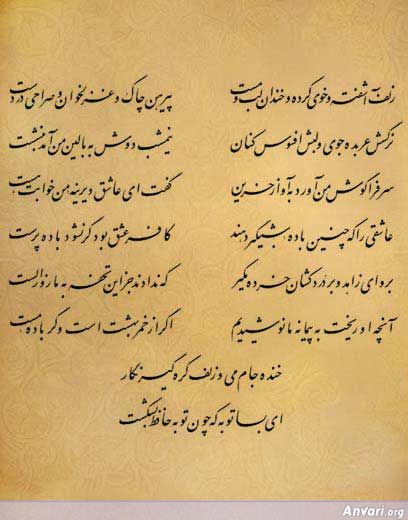 زلف آشفته و خوی کرده و خندان لب و مست پیرهن چاک و غزلخوان و صراحی در دست
نرگسش عربده جوی و لبش افسوس کنان نیمشب دوش به بالین من آمد بنشست
سر فرا گوش من آورد به آواز حزین گفت ای عاشق دیرینه من خوابت هست
عاشقی را که چنین باده شبگیر دهند کافر عشق بود گر نشود باده پرست
برو ای زاهد و بر درد کشان خرده مگیر که ندادند جز این تحفه به ما روز الست
آنچه او ریخت به پیمانه ما نوشیدیم اگر از خمر بهشت است وگر باده مست
خنده جام می و زلف گره گیر نگار
ای بسا توبه که چون توبه حافظ بشکست
Anvari.org